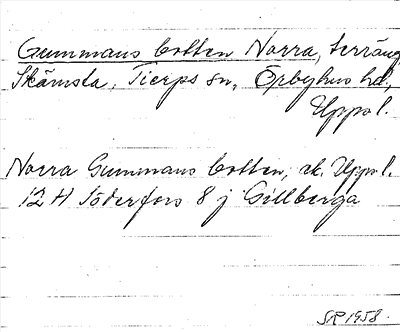 Gummans botten Norra, terräng
Skämsta, Tierps sn, Örbyhus hd,
Uppl.
Norra Gummans botten, ek. Uppl.
12 H Söderfors 8 j Gillberga
SR 1958.